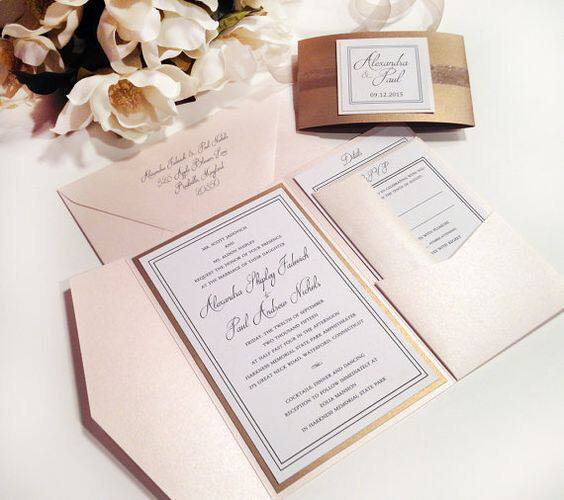 Alexandra
& Paul
09.12.2015
Alexandra & Paul Nichols
525 Apple Blossom Lane
Maryland
20850
Details
RSVP
MR. SCOTT
AND
MS. ALISON SHIPLEY
REQUEST THE HONOR OF YOUR PRESENCE
AT THE MARRIAGE OF THEIR DAUGHTER
Alexandra Shipley
&
Paul Andrew Nichols
FRIDAY, THE TWELFTH OF SEPTEMBER
TWO THOUSAND FIFTEEN
AT HALF PAST FOUR IN THE AFTERNOON
HARKNESS MEMORIAL STATE PARK AMPHITHEATER
275 GREAT NECK ROAD, WATERFORD, CONNECTICUT
COCKTAILS, DINNER AND DANCING
RECEPTION TO FOLLOW IMMEDIATELY AT
EOLIA MANSION
IN HARKNESS MEMORIAL STATE PARK